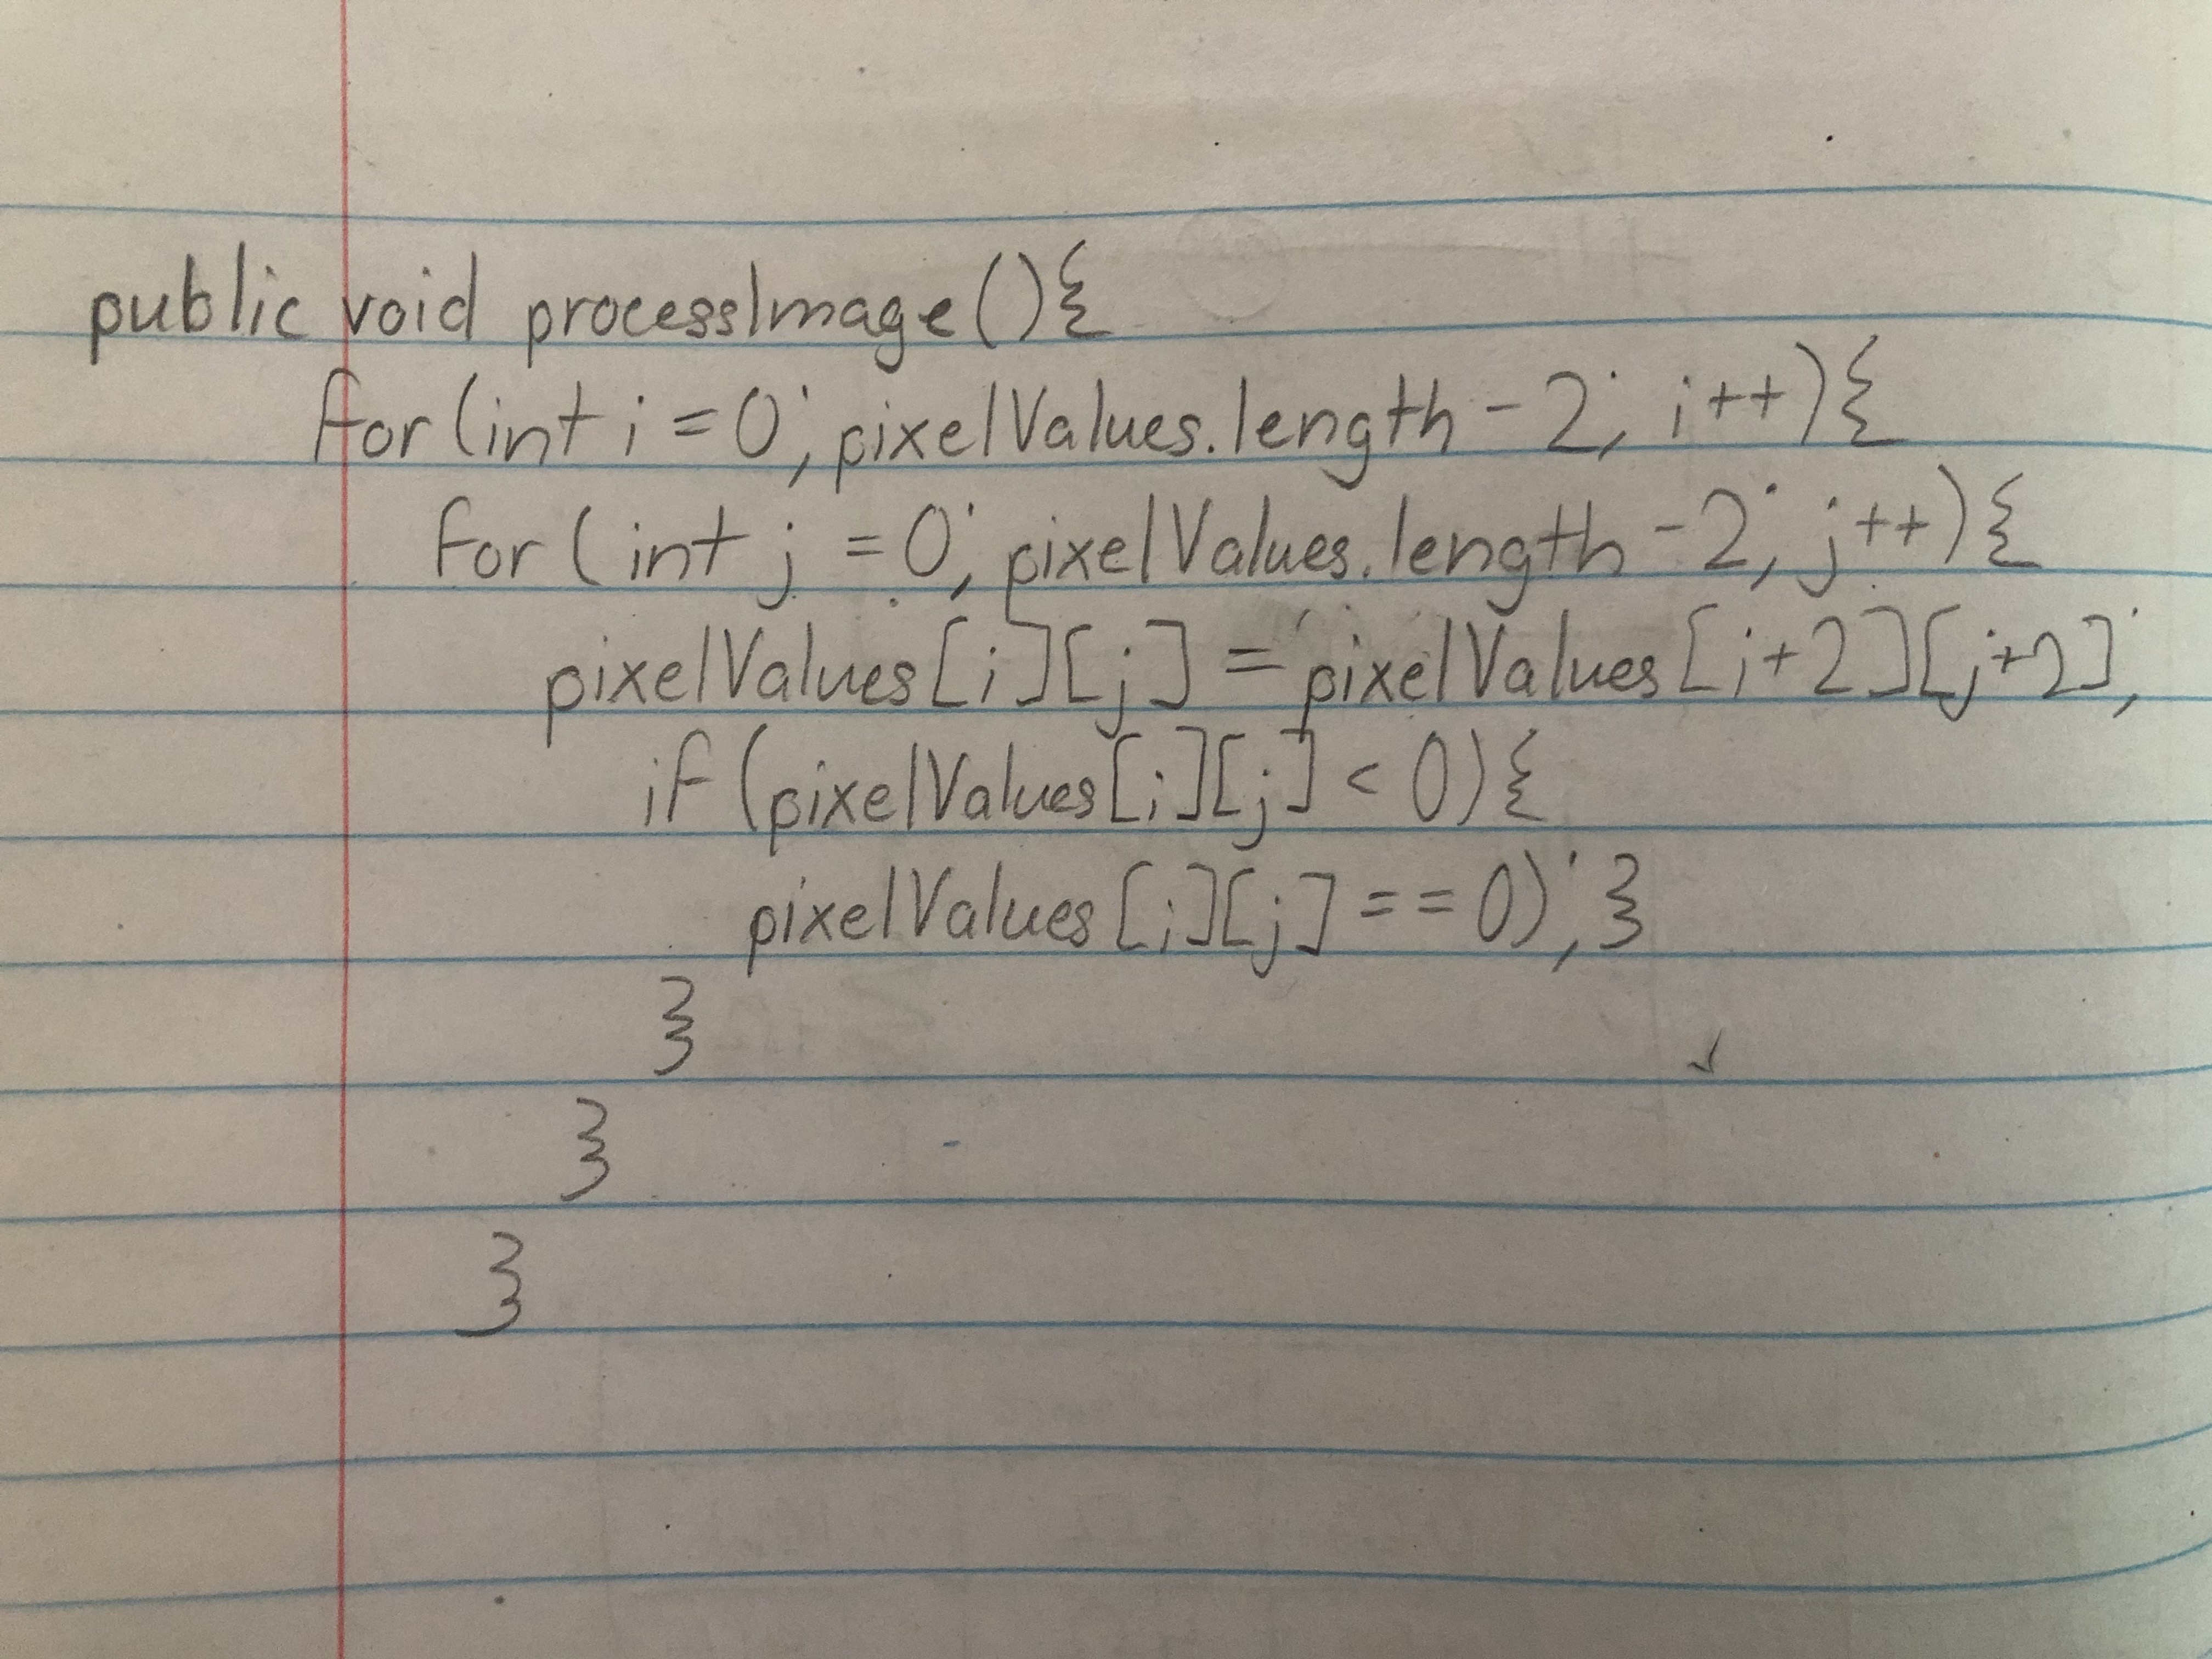 public void processImage(){
for(int i=0; pixelValues.length-2; i++){
for(int j=0; pixelValues.length-2; j++){
pixelValues[i][j] = pixelValues[i+2][j+2];
if (pixelValues[i][j] < 0){
pixelValues[i][j] == 0); }
}
}
}